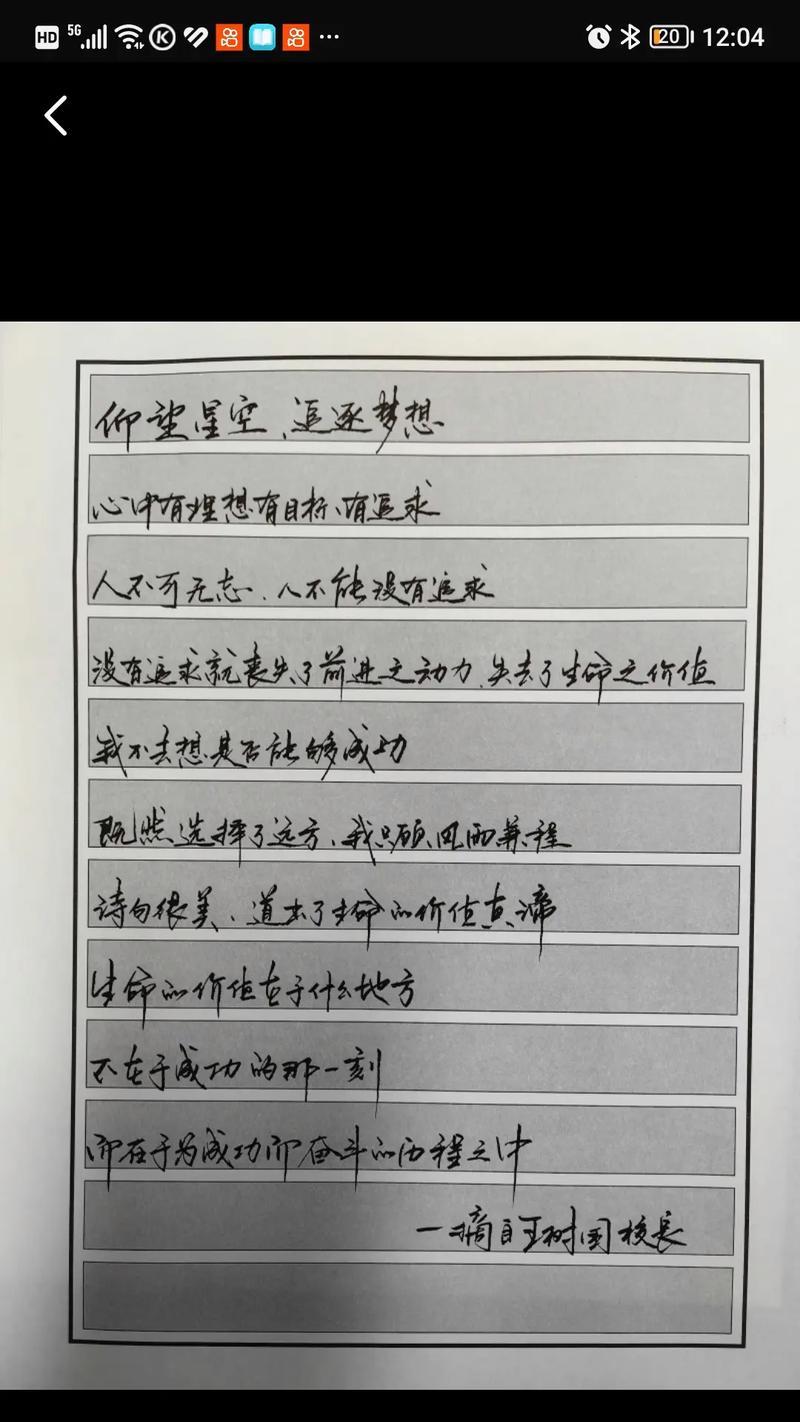 HD 5G 20 12:04
仰望星空、追逐梦想
心中有理想有目标、有追求
人不可无志、人不能没有追求
没有追求就丧失了前进之动力、失去了生命之价值
我不去想是否能够成功
既然选择了远方、我只顾风雨兼程
诗句很美、道出了生命的价值真谛
生命的价值在于什么地方
不在于成功的那一刻
而在于为成功而奋斗的历程之中
一摘自王树国校长